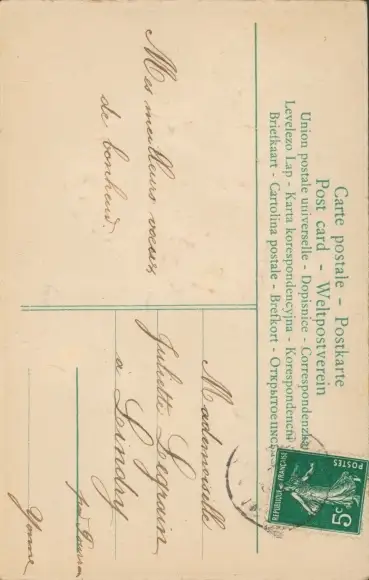 Carte postale - Postkarte
Post card - Weltpostverein
Union postale universelle - Dopisnice - Correspondenzkarte
Levelezo Lap - Karta korespondencyjna - Korespondencni
Briefkaart - Cartolina postale - Brefkort - Открытое письмо
Mes meilleurs vœux
de bonheur.
Mademoiselle
Juliette Legrain
a Lindry
Yonne
5c
POSTES